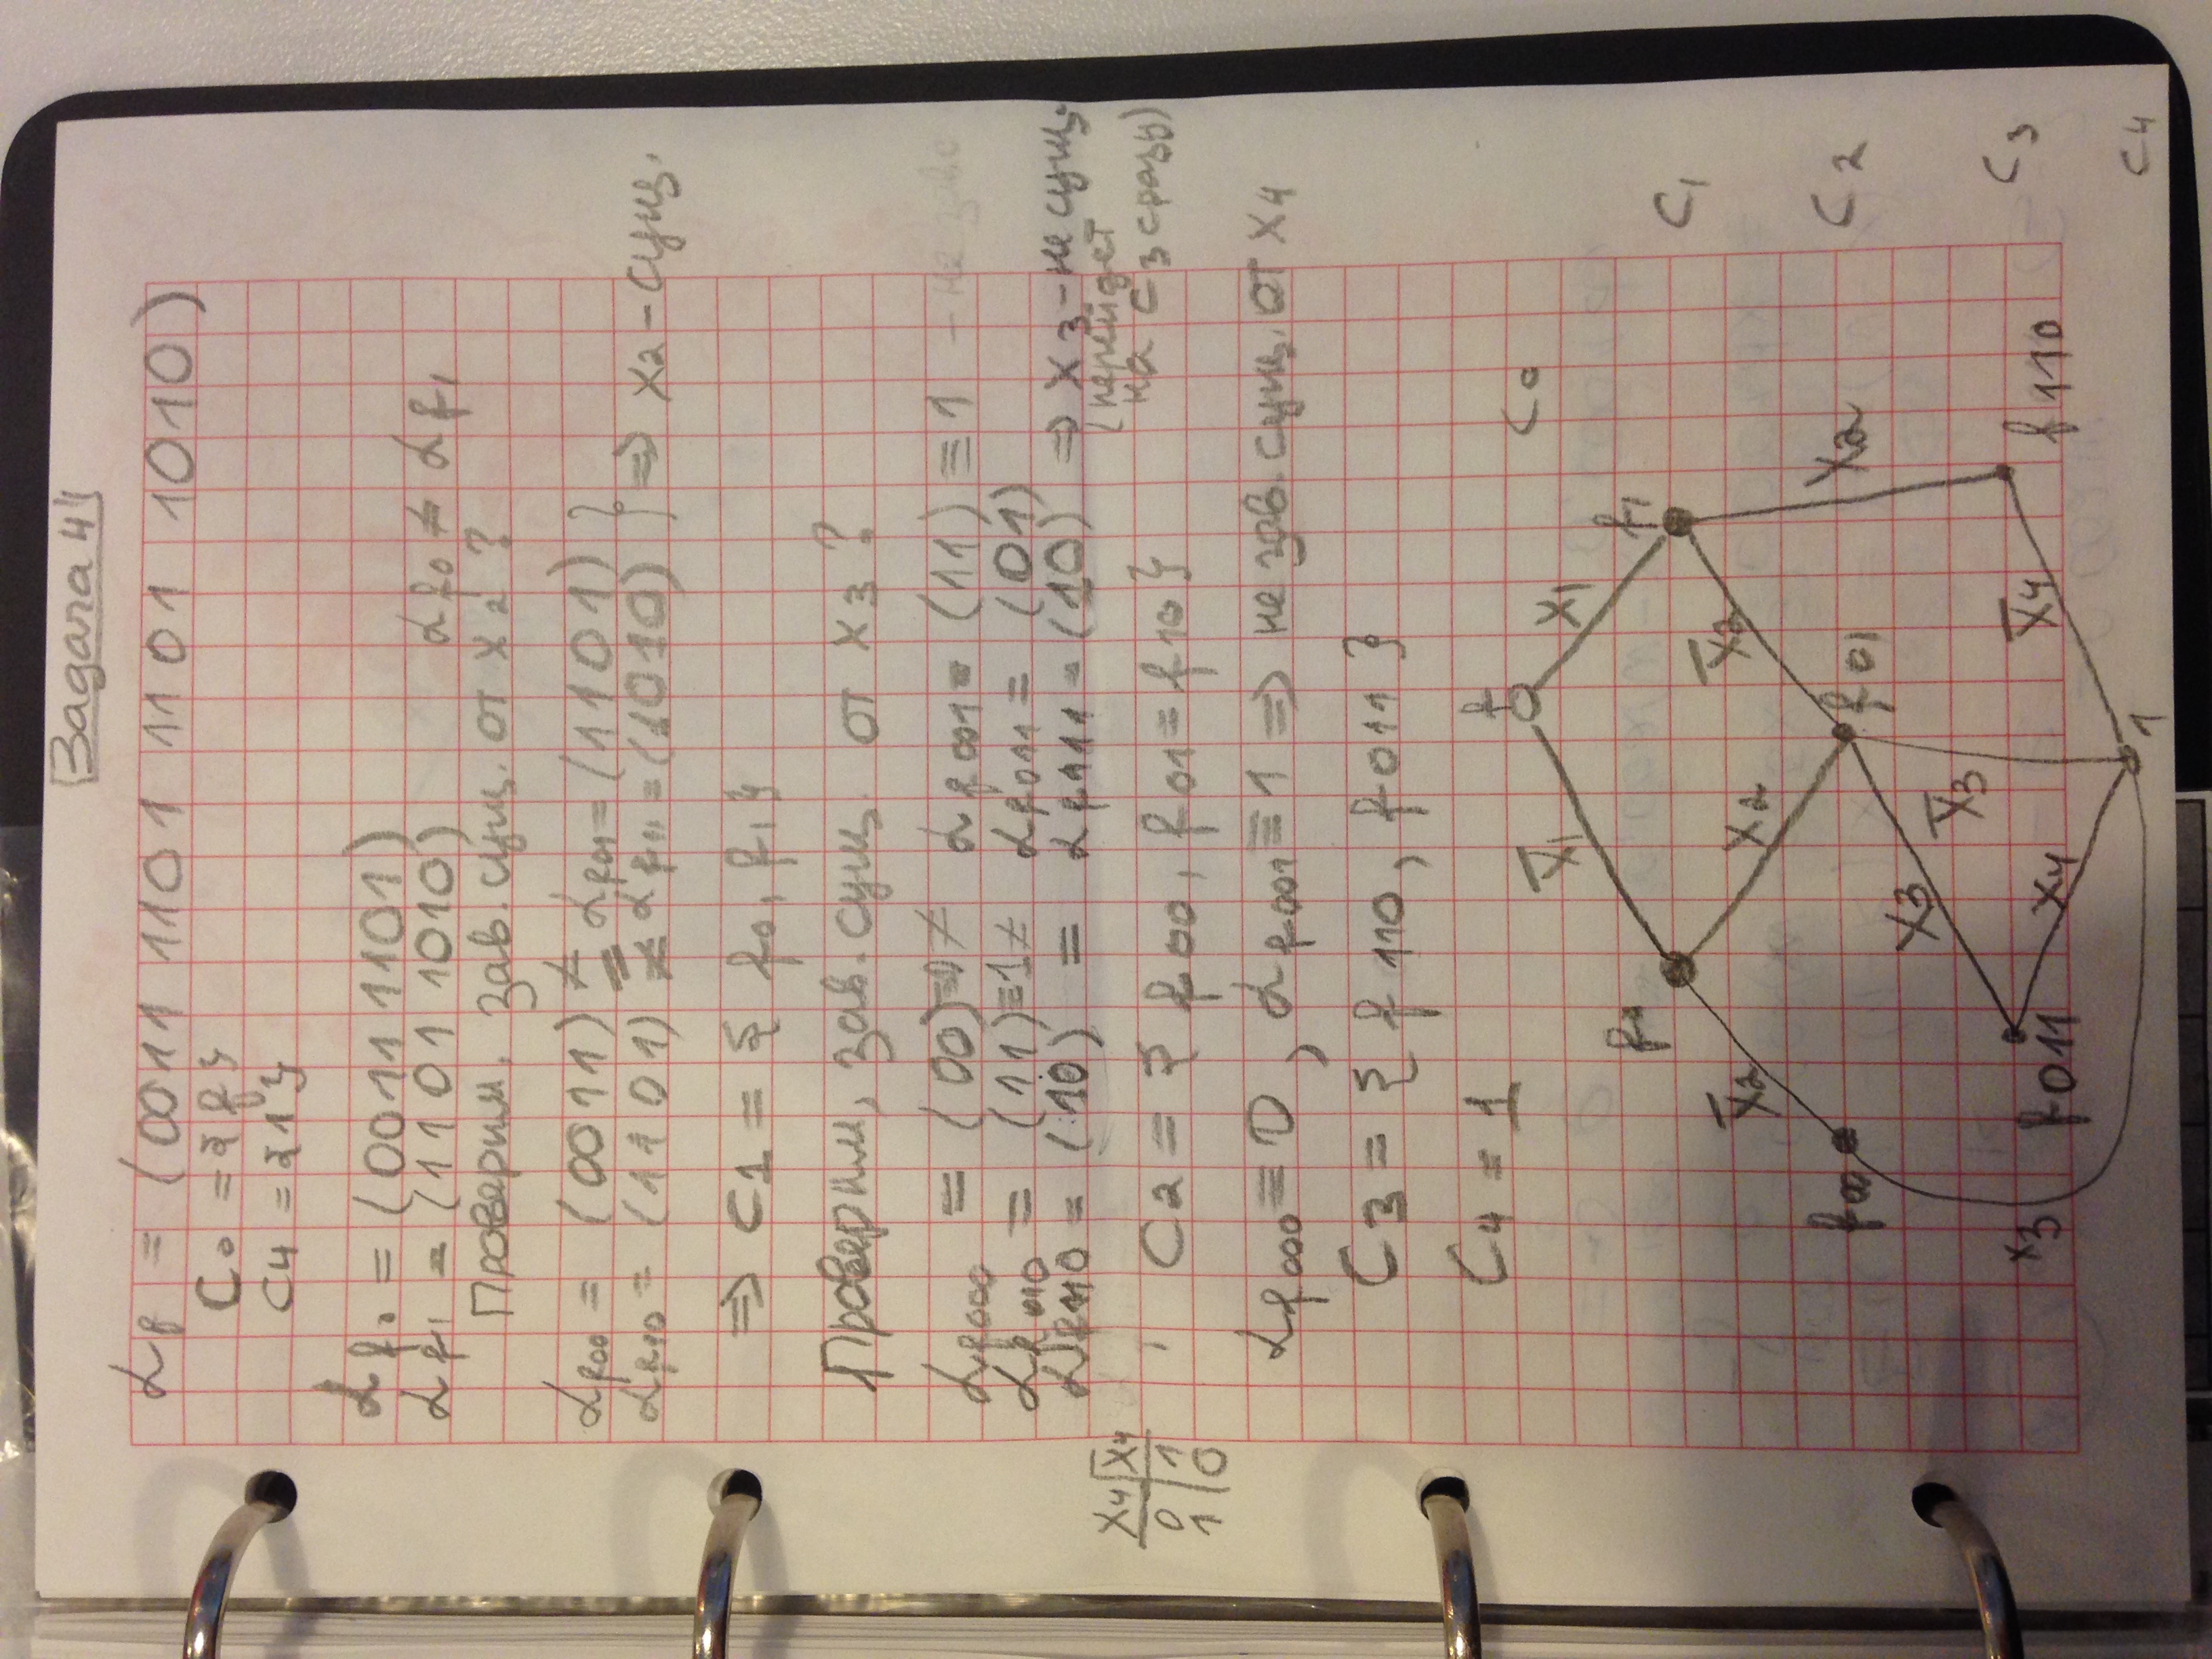 Задача 4
αf = (0011 1101 1101 1010)
C₀ = {f}
C₄ = {1}
αf₀ = (0011 1101)
αf₁ = (1101 1010) αf₀ ≠ αf₁
Проверим, зав. сущ. от x₂?
αf₀₀ = (0011) ≠ αf₀₁ = (1101) }
αf₁₀ = (1101) ≠ αf₁₁ = (1010) } ⇒ x₂ - сущ.
⇒ C1 = { f₀, f₁ }
Проверим, зав. сущ. от x₃?
αf₀₀₀ = (00)≡0 ≠ αf₀₀₁ = (11) ≡ 1
αf₀₁₀ = (11)≡1 ≠ αf₀₁₁ = (01)
αf₁₁₀ = (10) = αf₁₁₁ = (10) ⇒ x₃ - не сущ.
(перейдет
на C₃ сразу)
C₂ = { f₀₀, f₀₁ = f₁₀ }
x₄ x̄₄
0 1
1 0
αf₀₀₀ ≡ 0, αf₀₀₁ ≡ 1 ⇒ не зав. сущ. от x₄
C₃ = { f₁₁₀, f₀₁₁ }
C₄ = 1
f C₀
x̄₁ x₁
f₀ f₁ C₁
x̄₂ x₂ x̄₂ x₂
f₀₀ f₀₁ C₂
x₃ x̄₃
x₃ f₀₁₁ f₁₁₀ C₃
x₄ x̄₄
1 C₄